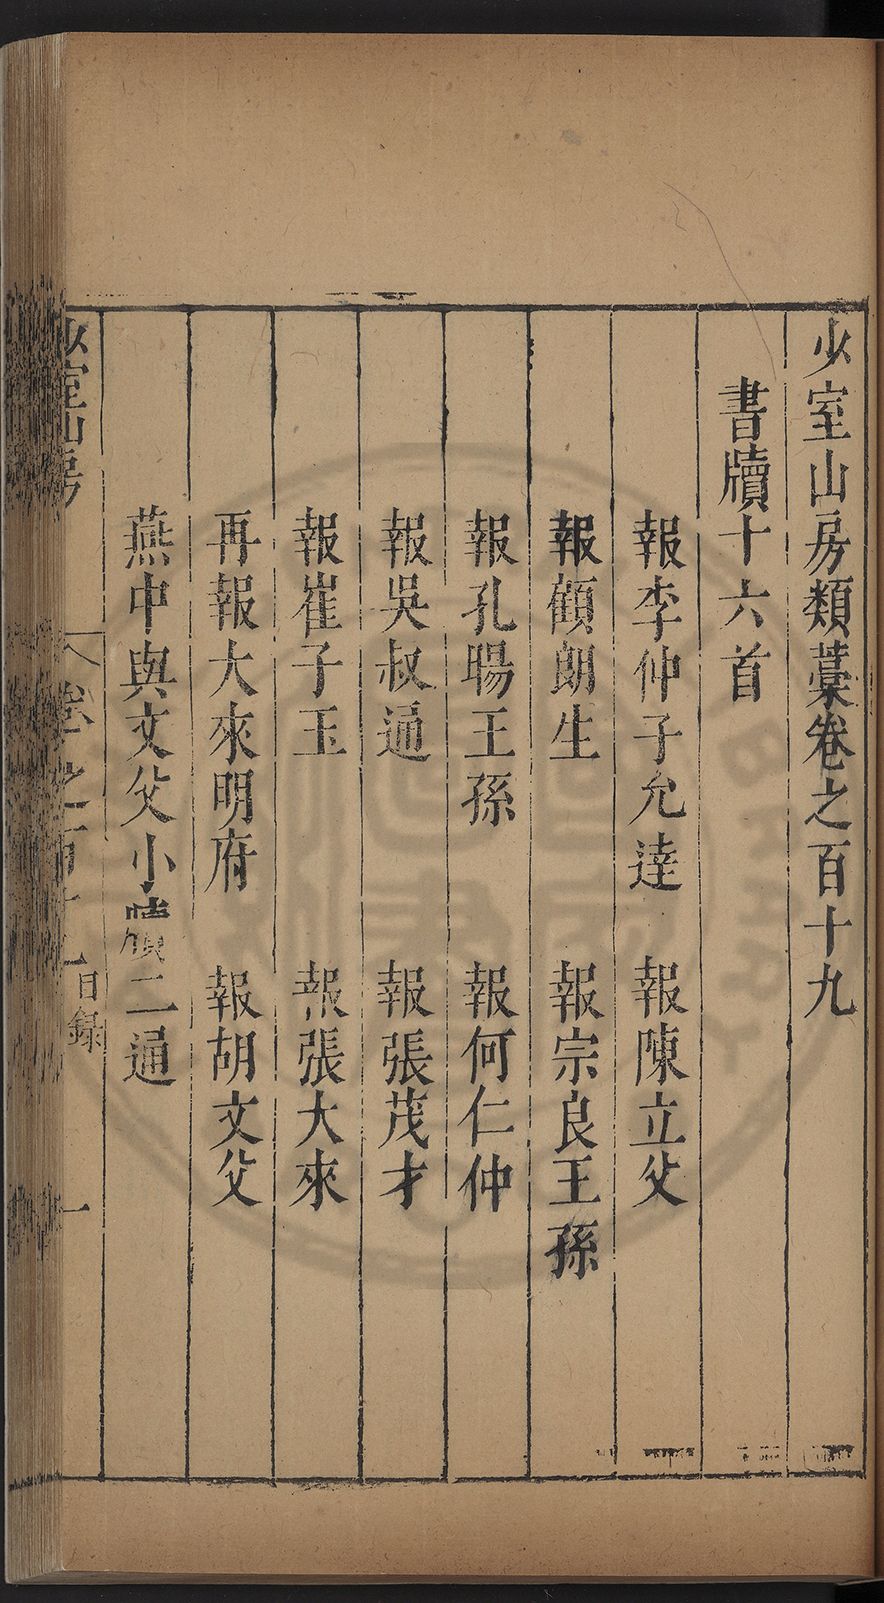 少室山房類藁卷之百十九
書牘十六首
報李仲子允達　報陳立父
報顧朗生　報宗良王孫
報孔暘王孫　報何仁仲
報吳叔通　報張茂才
報崔子玉　報張大來
再報大來明府　報胡文父
燕中與文父小牘二通
少室山房　卷之百十九　目錄　一